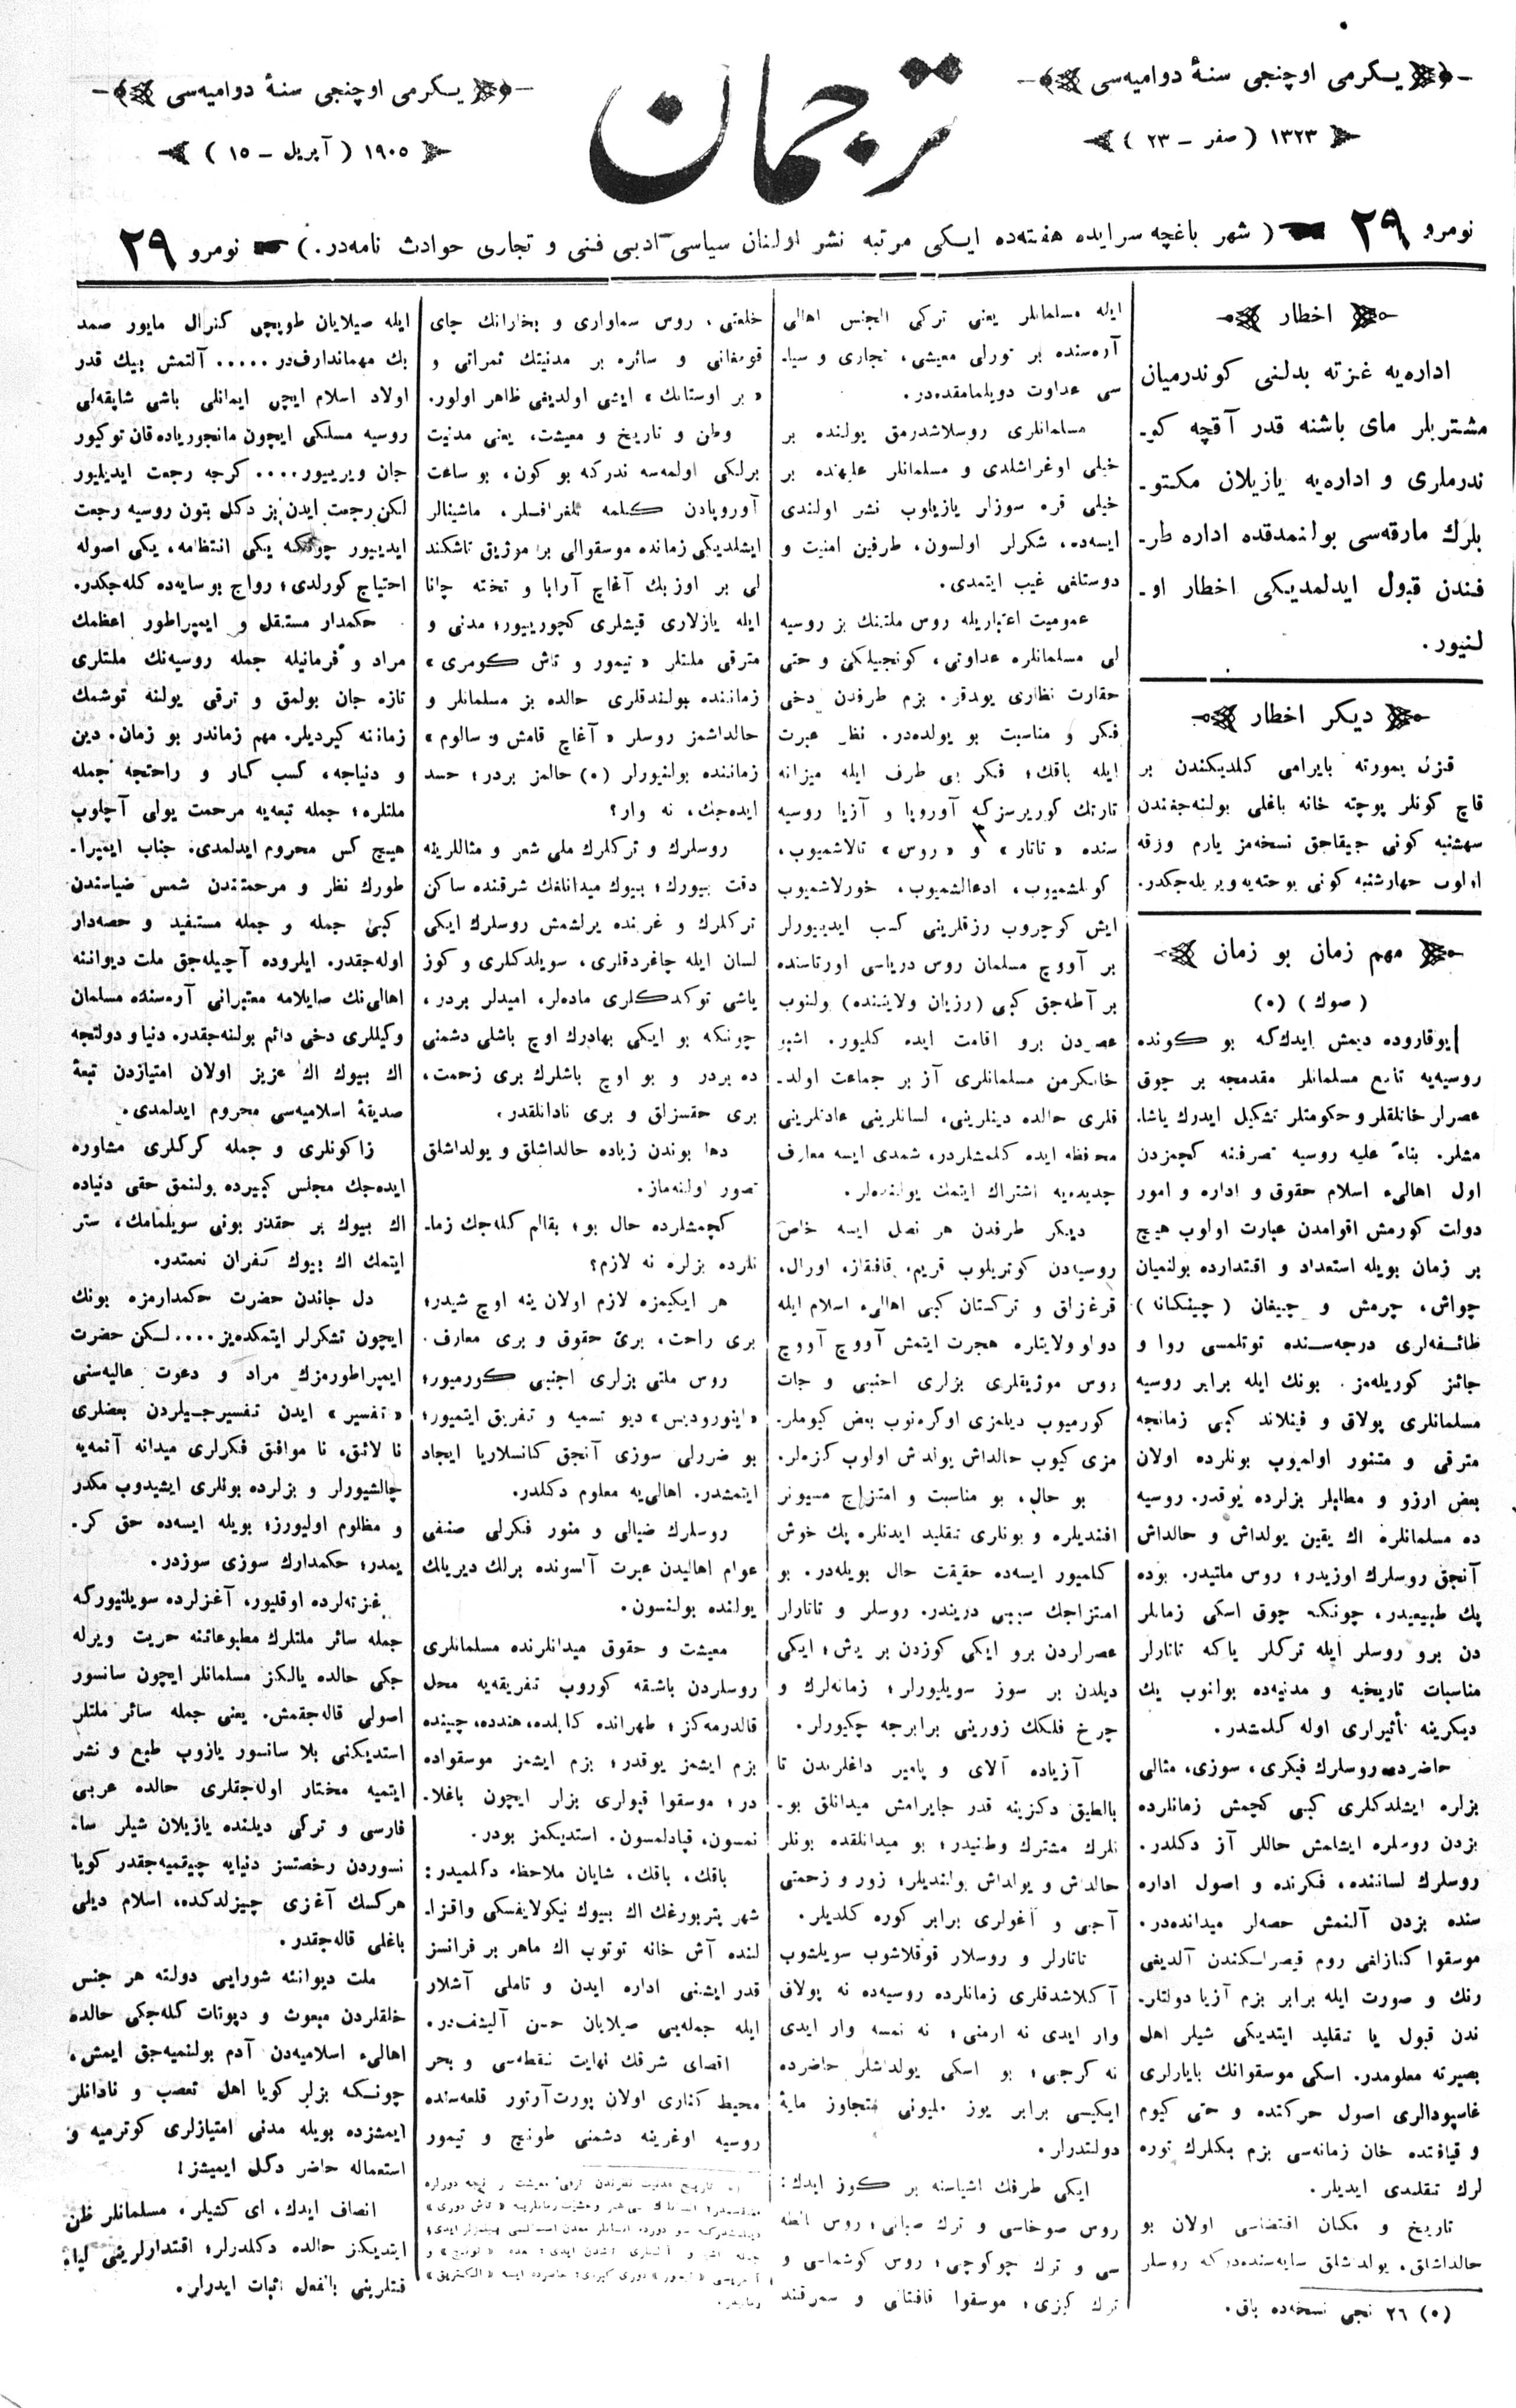 یکرمی اوچنجی سنهٔ دوامیه‌سی
۱۳۲۳ ( صفر - ۲۳ )
ترجمان
یکرمی اوچنجی سنهٔ دوامیه‌سی
۱۹۰۵ ( آپریل - ۱۵ )
نومرو ۲۹ ( شهر باغچه سرایده هفته‌ده ایکی مرتبه نشر اولنان سیاسی ادبی فنی و تجاری حوادث نامه‌در. ) نومرو ۲۹
اخطار
اداره‌یه غزته بدلنی کوندرمیان
مشتریلر مای باشنه قدر آقچه کو-
ندرملری و اداره‌یه یازیلان مکتو-
بلرك مارقه‌سی بولنمدقده اداره طر-
فندن قبول ایدلمدیکی اخطار او-
لنیور.
دیکر اخطار
قزل یمورته بایرامی کلدیکندن بر
قاچ کونلر پوچته خانه باغلی بولنه‌جغندن
سه‌شنبه کونی چیقاجق نسخه‌مز یارم ورقه
اولوب چهارشنبه کونی پوچته‌یه ویریله‌جکدر.
مهم زمان بو زمان
( صوك ) (٥)
یوقاروده دیمش ایدك‌که بو کونده
روسیه‌یه تابع مسلمانلر مقدمجه بر چوق
عصرلر خانلقلر و حکومتلر تشکیل ایدرك یاشا-
مشلر. بناءً علیه روسیه تصرفنه کچمزدن
اول اهالیء اسلام حقوق و اداره و امور
دولت کورمش اقوامدن عبارت اولوب هیچ
بر زمان بویله استعداد و اقتدارده بولنمیان
چواش، چرمش و چیغان (چینکانه)
طائفه‌لری درجه‌سنده توتلمسی روا و
جائز کوریله‌مز. بونك ایله برابر روسیه
مسلمانلری پولاق و فینلاند کبی زمانجه
مترقی و متنور اولمیوب بونلرده اولان
بعض ارزو و مطالبلر بزلرده یوقدر. روسیه
ده مسلمانلره اك یقین یولداش و حالداش
آنجق روسلرك اوزیدر؛ روس ملتیدر. بوده
پك طبیعیدر، چونکه چوق اسکی زمانلر
دن برو روسلر ایله ترکلر یاکه تاتارلر
مناسبات تاریخیه و مدنیه‌ده بولنوب یك
دیکرینه تأثیراری اوله کلمشدر.
حاضرده روسلرك فیکری، سوزی، مثالی
بزلره ایشلدکلری کبی کچمش زمانلرده
بزدن روسلره ایشلمش حاللر آز دکلدر.
روسلرك لساننده، فکرنده و اصول اداره
سنده بزدن آلنمش حصه‌لر میدانده‌در.
موسقوا کنازلغی روم قیصرلکندن آلدیغی
رنك و صورت ایله برابر بزم آزیا دولتلر-
ندن قبول یا تقلید ایتدیکی شیلر اهل
بصیرته معلومدر. اسکی موسقوانك بایارلری
غاسپودالری اصول حرکتده و حتی کیوم
و قیافتده خان زمانه‌سی بزم بکلرك توره
لرك تقلیدی ایدیلر.
تاریخ و مکان اقتضاسی اولان بو
حالداشلق، یولداشلق سایه‌سنده‌درکه روسلر
(٥) ۲٦ نجی نسخه‌ده باق.
ایله مسلمانلر یعنی ترکی الجنس اهالی
آره‌سنده بر تورلی معیشی، تجاری و سیا-
سی عداوت دویلمامقده‌در.
مسلمانلری روسلاشدرمق یولنده بر
خیلی اوغراشلدی و مسلمانلر علیهنده بر
خیلی قره سوزلر یازیلوب نشر اولندی
ایسه‌ده، شکرلر اولسون، طرفین امنیت و
دوستلغی غیب ایتمدی.
عمومیت اعتباریله روس ملتینك بز روسیه
لی مسلمانلره عداوتی، کونجیلکی و حتی
حقارت نظاری یوقدر. بزم طرفدن دخی
فکر و مناسبت بو یولده‌در. نظر عبرت
ایله باقك؛ فکر بی طرف ایله میزانه
تارتك کوریرسزکه آوروپا و آزیا روسیه
سنده «تاتار» و «روس» تالاشمیوب،
کولشمیوب، ادعالشمیوب، خورلاشمیوب
ایش کوچروب رزقلرینی کسب ایدییورلر
بر آووچ مسلمان روس دریاسی اورتاسنده
بر آطه‌جق کبی (رزیان ولایتنده) ولنوب
عصردن برو اقامت ایده کلیور. اشبو
خانکرمن مسلمانلری آز بر جماعت اولد-
قلری حالده دینلرینی، لسانلرینی عادتلرینی
محافظه ایده کلمشلردر، شمدی ایسه معارف
جدیده‌یه اشتراك ایتمك یولنده‌لر.
دیکر طرفدن هر نصل ایسه خاص
روسیه‌دن کوتریلوب قریم، قافقاز، اورال،
قرغزلق و ترکستان کبی اهالیء اسلام ایله
دولو ولایتلره هجرت ایتمش آووچ آووچ
روس موژیقلری بزلری اجنبی و جات
کورمیوب دیلمزی اوکره‌نوب بعض کیوملر-
مزی کیوب حالداش یولداش اولوب کزه‌لر.
بو حال، بو مناسبت و امتزاج مسیونر
افندیلره و بونلری تقلید ایدنلره پك خوش
کلمیور ایسه‌ده حقیقت حال بویله‌در. بو
امتزاجك سببی دریندر. روسلر و تاتارلر
عصرلردن برو ایکی کوزدن بر یش؛ ایکی
دیلدن بر سوز سویلیورلر؛ زمانه‌لرك و
چرخ فلکك زورینی برابرجه چکیورلر.
آزیاده آلای و پامیر داغلرندن تا
بالطیق دکزینه قدر جایرامش میدانلق بو-
نلرك مشترك وطنیدر؛ بو میدانلقده بونلر
حالداش و یولداش بولندیلر؛ زور و زحمتی
آجی و آغولری برابر کوره کلدیلر.
تاتارلر و روسلار قوقلاشوب سویلشوب
آکلاشدقلری زمانلرده روسیه‌ده نه پولاق
وار ایدی نه ارمنی؛ نه نمسه وار ایدی
نه کرجی؛ بو اسکی یولداشلر حاضرده
ایکیسی برابر یوز ملیونی متجاوز مایهٔ
دولتدرلر.
ایکی طرفك اشیاسنه بر کوز ایدك:
روس صوخاسی و ترك صبانی؛ روس
سی و ترك چوکوچی؛ روس کوشماسی و
ترك کبزی؛ موسقوا قافتانی و سمرقند
خلعتی، روس سماواری و بخارانك جای
قومغانی و سائره بر مدنیتك ثمراتی و
«بر اوستانك» ایشی اولدیغی ظاهر اولور.
وطن و تاریخ و معیشت، یعنی مدنیت
برلکی اولمه‌سه ندرکه بو کون، بو ساعت
آوروپادن کلمه تلغرافلر، ماشینالر
ایشلدیکی زمانده موسقوالی بر موژیق تاشکند
لی بر اوزبك آغاچ آرابا و تخته چانا
ایله یازلاری قیشلری کچورییور؛ مدنی و
مترقی ملتلر «تیمور و تاش کومری»
زماننده بولندقلری حالده بز مسلمانلر و
حالداشمز روسلر «آغاچ قامش و سالوم»
زماننده بولنیورلر (٥) حالمز بردر؛ حسد
ایده‌جك، نه وار؟
روسلرك و ترکلرك ملی شعر و مثاللرینه
دقت بیورك؛ بیوك میدانلغك شرقنده ساکن
ترکلرك و غربنده یرلشمش روسلرك ایکی
لسان ایله چاغردقلری، سویلدکلری و کوز
یاشی توکدکلری ماده‌لر، امیدلر بردر،
چونکه بو ایکی بهادرك اوچ باشلی دشمنی
ده بردر و بو اوچ باشلرك بری زحمت،
بری حقسزلق و بری نادانلقدر.
دها بوندن زیاده حالداشلق و یولداشلق
تصور اولنه‌ماز.
کچمشلرده حال بو؛ بقالم کله‌جك زما-
نلرده بزلره نه لازم؟
هر ایکیمزه لازم اولان ینه اوچ شیدر؛
بری راحت، بری حقوق و بری معارف.
روس ملتی بزلری اجنبی کورمیور؛
«اینورودیس» دیو تسمیه و تفریق ایتمیور؛
بو ضررلی سوزی آنجق کانسلاریا ایجاد
ایتمشدر. اهالی‌یه معلوم دکلدر.
روسلرك ضیالی و منور فکرلی صنفی
عوام اهالیدن عبرت آلسونده برلك دیریلك
یولنده بولنسون.
معیشت و حقوق میدانلرنده مسلمانلری
روسلردن باشقه کوروب تفریقه‌یه محل
قالدرمه‌کز؛ طهرانده کابلده، هندده، چینده
بزم ایشمز یوقدر؛ بزم ایشمز موسقواده
در؛ موسقوا قپولری بزلر ایچون باغلا-
نمسون، قپادلمسون. استدیکمز بودر.
باقك، باقك، شایان ملاحظه دکلمیدر:
شهر پتربورغك اك بیوك نیکولایفسکی واقزا-
لنده آش خانه توتوب اك ماهر بر فرانسز
قدر ایشنی اداره ایدن و تاملی آشلار
ایله جمله‌یی صیلایان حسن آلیشف‌در.
اقصای شرقك نهایت نقطه‌سی و بحر
محیط کناری اولان پورت آرتور قلعه‌سنده
روسیه اوغرینه دشمنی طونچ و تیمور
ایله صیلایان طوپچی کنرال مایور صمد
بك مهماندارف‌در ..... آلتمش بیك قدر
اولاد اسلام ایچی ایمانلی باشی شاپقه‌لی
روسیه مسلکی ایچون مانجوریاده قان توکیور
جان ویرییور.... کرچه رجعت ایدیلیور
لکن رجعت ایدن بز دکل بتون روسیه رجعت
ایدییور چونکه یکی انتظامه، یکی اصوله
احتیاج کورلدی؛ رواج بو سایه‌ده کله‌جکدر.
حکمدار مستقل و ایمپراطور اعظمك
مراد و فرمانیله جمله روسیه‌نك ملتلری
تازه جان بولمق و ترقی یولنه توشمك
زماننه کیردیلر. مهم زماندر بو زمان. دین
و دنیاجه، کسب کار و راحتجه جمله
ملتلره؛ جمله تبعه‌یه مرحمت یولی آچلوب
هیچ کس محروم ایدلمدی. جناب ایمپرا-
طورك نظر و مرحمتندن شمس ضیاسندن
کبی جمله و جمله مستفید و حصه‌دار
اوله‌جقدر. ایلروده آچیله‌جق ملت دیواننه
اهالی‌نك صایلامه معتبرانی آره‌سنده مسلمان
وکیللری دخی دائم بولنه‌جقدر. دنیا و دولتجه
اك بیوك اك عزیز اولان امتیازدن تبعهٔ
صدیقهٔ اسلامیه‌سی محروم ایدلمدی.
زاکونلری و جمله کرکلری مشاوره
ایده‌جك مجلس کبیرده بولنمق حقی دنیاده
اك بیوك بر حقدر بونی سویلمامك، ستر
ایتمك اك بیوك کفران نعمتدر.
دل جاندن حضرت حکمدارمزه بونك
ایچون تشکرلر ایتمکده‌یز.... لکن حضرت
ایمپراطورمزك مراد و دعوت عالیه‌سنی
«تفسیر» ایدن تفسیرجیلردن بعضلری
نا لائق، نا موافق فکرلری میدانه آتمه‌یه
چالشیورلر و بزلرده بونلری ایشیدوب مکدر
و مظلوم اولیورز؛ بویله ایسه‌ده حق کر-
یمدر؛ حکمدارك سوزی سوزدر.
غزته‌لرده اوقلیور، آغزلرده سویلنیورکه
جمله سائر ملتلرك مطبوعاتنه حریت ویریله
جکی حالده یالکز مسلمانلر ایچون سانسور
اصولی قاله‌جقمش. یعنی جمله سائر ملتلر
استدیکنی بلا سانسور یازوب طبع و نشر
ایتمیه مختار اوله‌جقلری حالده عربی
فارسی و ترکی دیلنده یازیلان شیلر سا-
نسوردن رخصتسز دنیایه چیقمیه‌جقدر کویا
هرکسك آغزی چیزلدکده، اسلام دیلی
باغلی قاله‌جقدر.
ملت دیواننه شورایی دولته هر جنس
خلقلردن مبعوث و دپوتات کله‌جکی حالده
اهالیء اسلامیه‌دن آدم بولنمیه‌جق ایمش،
چونکه بزلر کویا اهل تعصب و نادانلر
ایمشزده بویله مدنی امتیازلری کوترمیه و
استعماله حاضر دکل ایمیشز!
انصاف ایدك، ای کشیلر. مسلمانلر ظن
ایتدیکز حالده دکلدرلر؛ اقتدارلرینی لیا-
قتلرینی بالفعل اثبات ایدرلر.